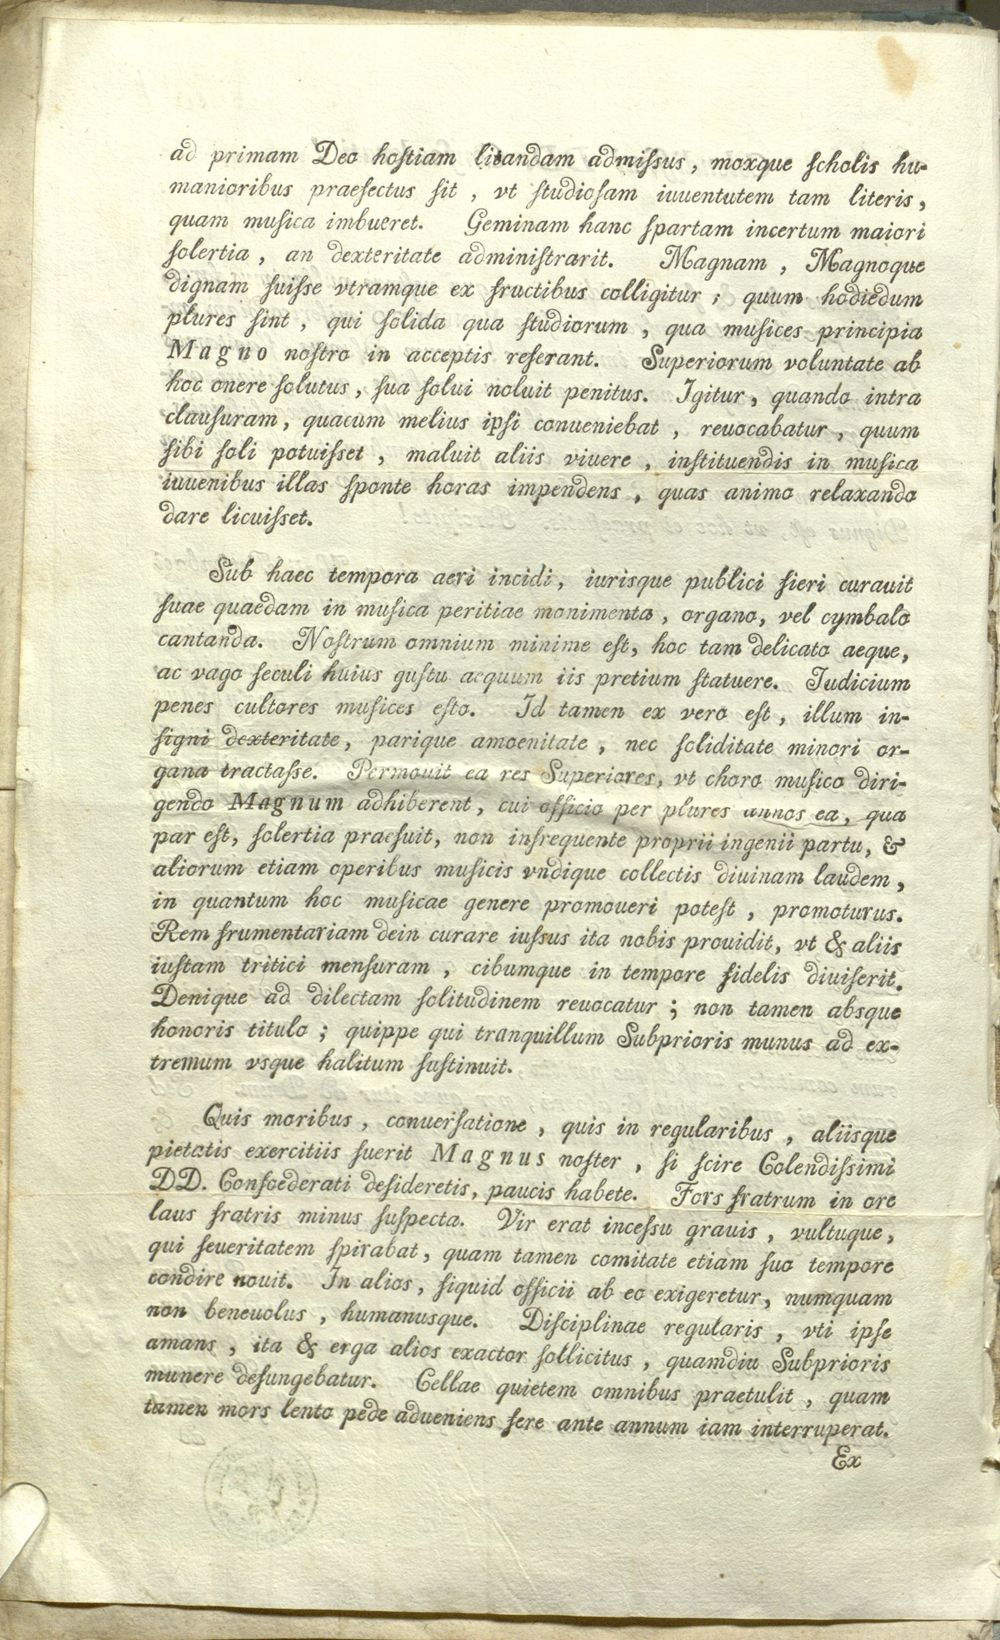 ad primam Deo hoſtiam litandam admiſſus, moxque ſcholis hu-
manioribus praefectus ſit, vt ſtudioſam iuuentutem tam literis,
quam muſica imbueret. Geminam hanc ſpartam incertum maiori
ſolertia, an dexteritate adminiſtrarit. Magnam, Magnoque
dignam fuiſſe vtramque ex fructibus colligitur; quum hodiedum
plures ſint, qui ſolida qua ſtudiorum, qua muſices principia
Magno noſtro in acceptis referant. Superiorum voluntate ab
hoc onere ſolutus, ſua ſolui noluit penitus. Igitur, quando intra
clauſuram, quacum melius ipſi conueniebat, reuocabatur, quum
ſibi ſoli potuiſſet, maluit aliis viuere, inſtituendis in muſica
iuuenibus illas ſponte horas impendens, quas animo relaxando
dare licuiſſet.
Sub haec tempora aeri incidi, iurisque publici fieri curauit
ſuae quaedam in muſica peritiae monimenta, organo, vel cymbalo
cantanda. Noſtrum omnium minime eſt, hoc tam delicato aeque,
ac vago ſeculi huius guſtu aequum iis pretium ſtatuere. Iudicium
penes cultores muſices eſto. Id tamen ex vero eſt, illum in-
ſigni dexteritate, parique amoenitate, nec ſoliditate minori or-
gana tractaſſe. Permouit ea res Superiores, vt choro muſico diri-
gendo Magnum adhiberent, cui officio per plures annos ea, qua
par eſt, ſolertia praefuit, non infrequente proprii ingenii partu, &
aliorum etiam operibus muſicis vndique collectis diuinam laudem,
in quantum hoc muſicae genere promoueri poteſt, promoturus.
Rem frumentariam dein curare iuſſus ita nobis prouidit, vt & aliis
iuſtam tritici menſuram, cibumque in tempore fidelis diuiſerit.
Denique ad dilectam ſolitudinem reuocatur; non tamen absque
honoris titulo; quippe qui tranquillum Subprioris munus ad ex-
tremum vsque halitum ſuſtinuit.
Quis moribus, conuerſatione, quis in regularibus, aliisque
pietatis exercitiis fuerit Magnus noſter, ſi ſcire Colendiſſimi
DD. Confoederati deſideretis, paucis habete. Fors fratrum in ore
laus fratris minus ſuſpecta. Vir erat inceſſu grauis, vultuque,
qui ſeueritatem ſpirabat, quam tamen comitate etiam ſuo tempore
condire nouit. In alios, ſiquid officii ab eo exigeretur, numquam
non beneuolus, humanusque. Diſciplinae regularis, vti ipſe
amans, ita & erga alios exactor ſollicitus, quamdiu Subprioris
munere defungebatur. Cellae quietem omnibus praetulit, quam
tamen mors lento pede adueniens fere ante annum iam interruperat.
Ex